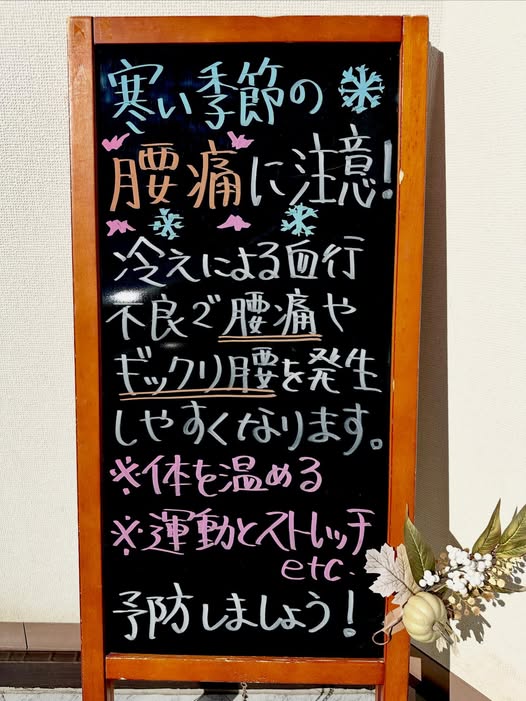 寒い季節の
腰痛に注意!
冷えによる血行
不良で腰痛や
ギックリ腰を発生
しやすくなります。
※体を温める
※運動とストレッチ
etc.
予防しましょう!